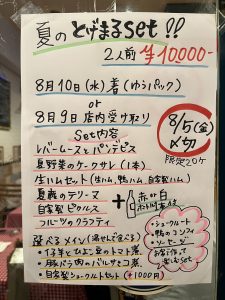 夏のとげまるset!!
2人前 ¥10,000-
8月10日(水)着(ゆうパック)
or
8月9日店内受け取り
8/5(金)
〆切
限定20ケ
Set内容
レバームースとパンデピス
夏野菜のケークサレ(1本)
生ハムセット(生ハム、鴨ハム、自家製ハム)
夏鹿のテリーヌ
自家製ピクルス
フルーツのクラフティ
+
赤or白
選べるメイン(湯せんで食べる)
・仔羊とひよこ豆のトマト煮
・豚バラ肉のバルサミコ煮
・自家製シュークルートセット(+1000円)
・シュークルート
・鴨のコンフィ
・ソーセージ